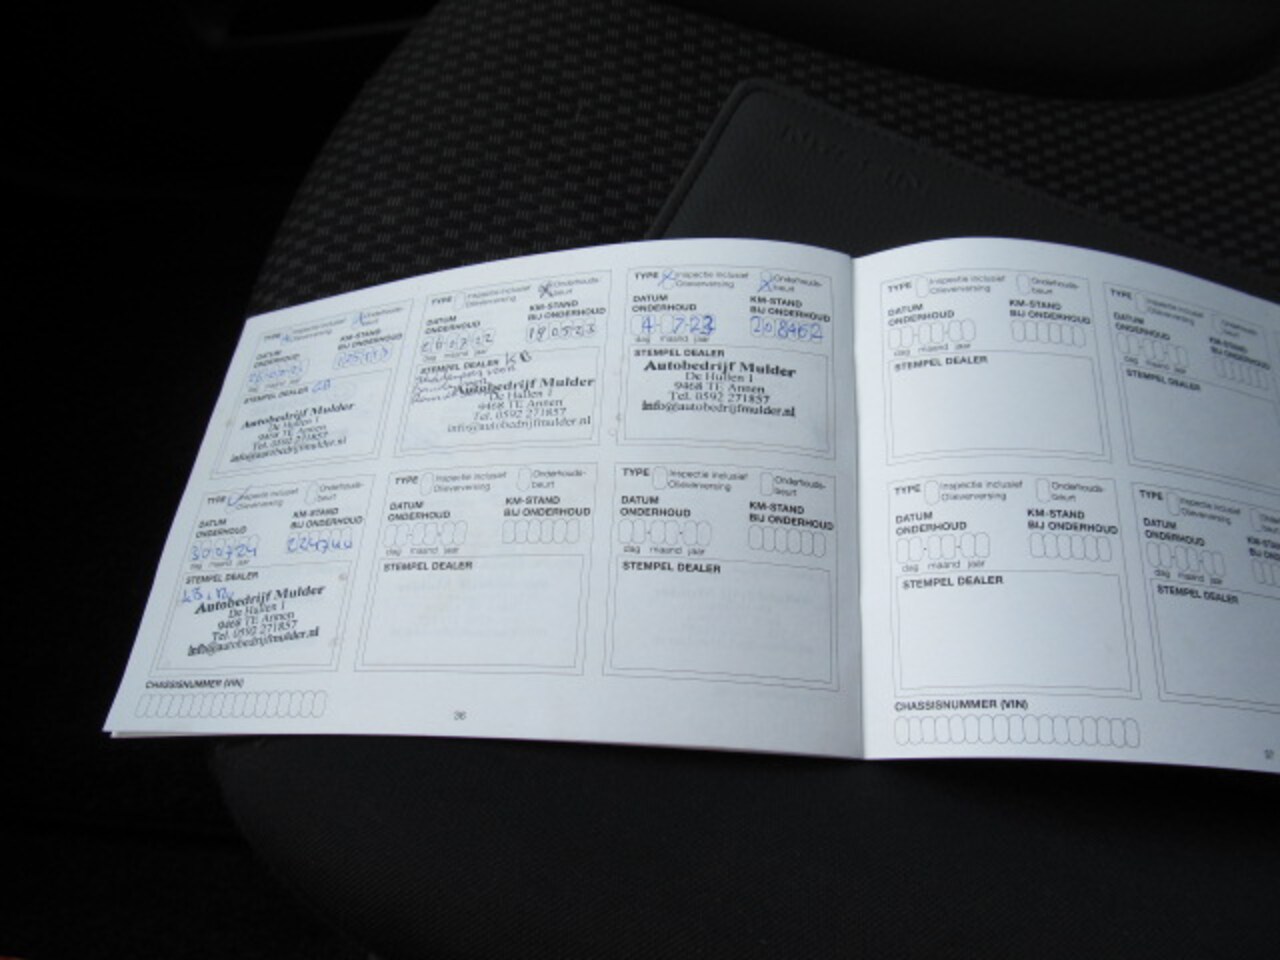 TYPE Inspectie inclusief Olieverversing Onderhouds-beurt
DATUM ONDERHOUD KM-STAND BIJ ONDERHOUD
dag maand jaar
STEMPEL DEALER
Autobedrijf Mulder
De Hullen 1
9468 TE Annen
Tel. 0592 271857
info@autobedrijfmulder.nl
TYPE Inspectie inclusief Olieverversing Onderhouds-beurt
DATUM ONDERHOUD KM-STAND BIJ ONDERHOUD
190523
dag maand jaar
STEMPEL DEALER KB
Autobedrijf Mulder
De Hullen 1
9468 TE Annen
Tel. 0592 271857
info@autobedrijfmulder.nl
TYPE Inspectie inclusief Olieverversing Onderhouds-beurt
DATUM ONDERHOUD KM-STAND BIJ ONDERHOUD
208462
dag maand jaar
STEMPEL DEALER
Autobedrijf Mulder
De Hullen 1
9468 TE Annen
Tel. 0592 271857
info@autobedrijfmulder.nl
TYPE Inspectie inclusief Olieverversing Onderhouds-beurt
DATUM ONDERHOUD KM-STAND BIJ ONDERHOUD
300724 224744
dag maand jaar
STEMPEL DEALER
Autobedrijf Mulder
De Hullen 1
9468 TE Annen
Tel. 0592 271857
info@autobedrijfmulder.nl
TYPE Inspectie inclusief Olieverversing Onderhouds-beurt
DATUM ONDERHOUD KM-STAND BIJ ONDERHOUD
dag maand jaar
STEMPEL DEALER
TYPE Inspectie inclusief Olieverversing Onderhouds-beurt
DATUM ONDERHOUD KM-STAND BIJ ONDERHOUD
dag maand jaar
STEMPEL DEALER
CHASSISNUMMER (VIN)
36
TYPE Inspectie inclusief Olieverversing Onderhouds-beurt
DATUM ONDERHOUD KM-STAND BIJ ONDERHOUD
dag maand jaar
STEMPEL DEALER
TYPE Inspectie inclusief Olieverversing Onderhouds-beurt
DATUM ONDERHOUD KM-STAND BIJ ONDERHOUD
dag maand jaar
STEMPEL DEALER
TYPE Inspectie inclusief Olieverversing Onderhouds-beurt
DATUM ONDERHOUD KM-STAND BIJ ONDERHOUD
dag maand jaar
STEMPEL DEALER
TYPE Inspectie inclusief Olieverversing
DATUM ONDERHOUD KM-STAND
dag maand jaar
STEMPEL DEALER
CHASSISNUMMER (VIN)